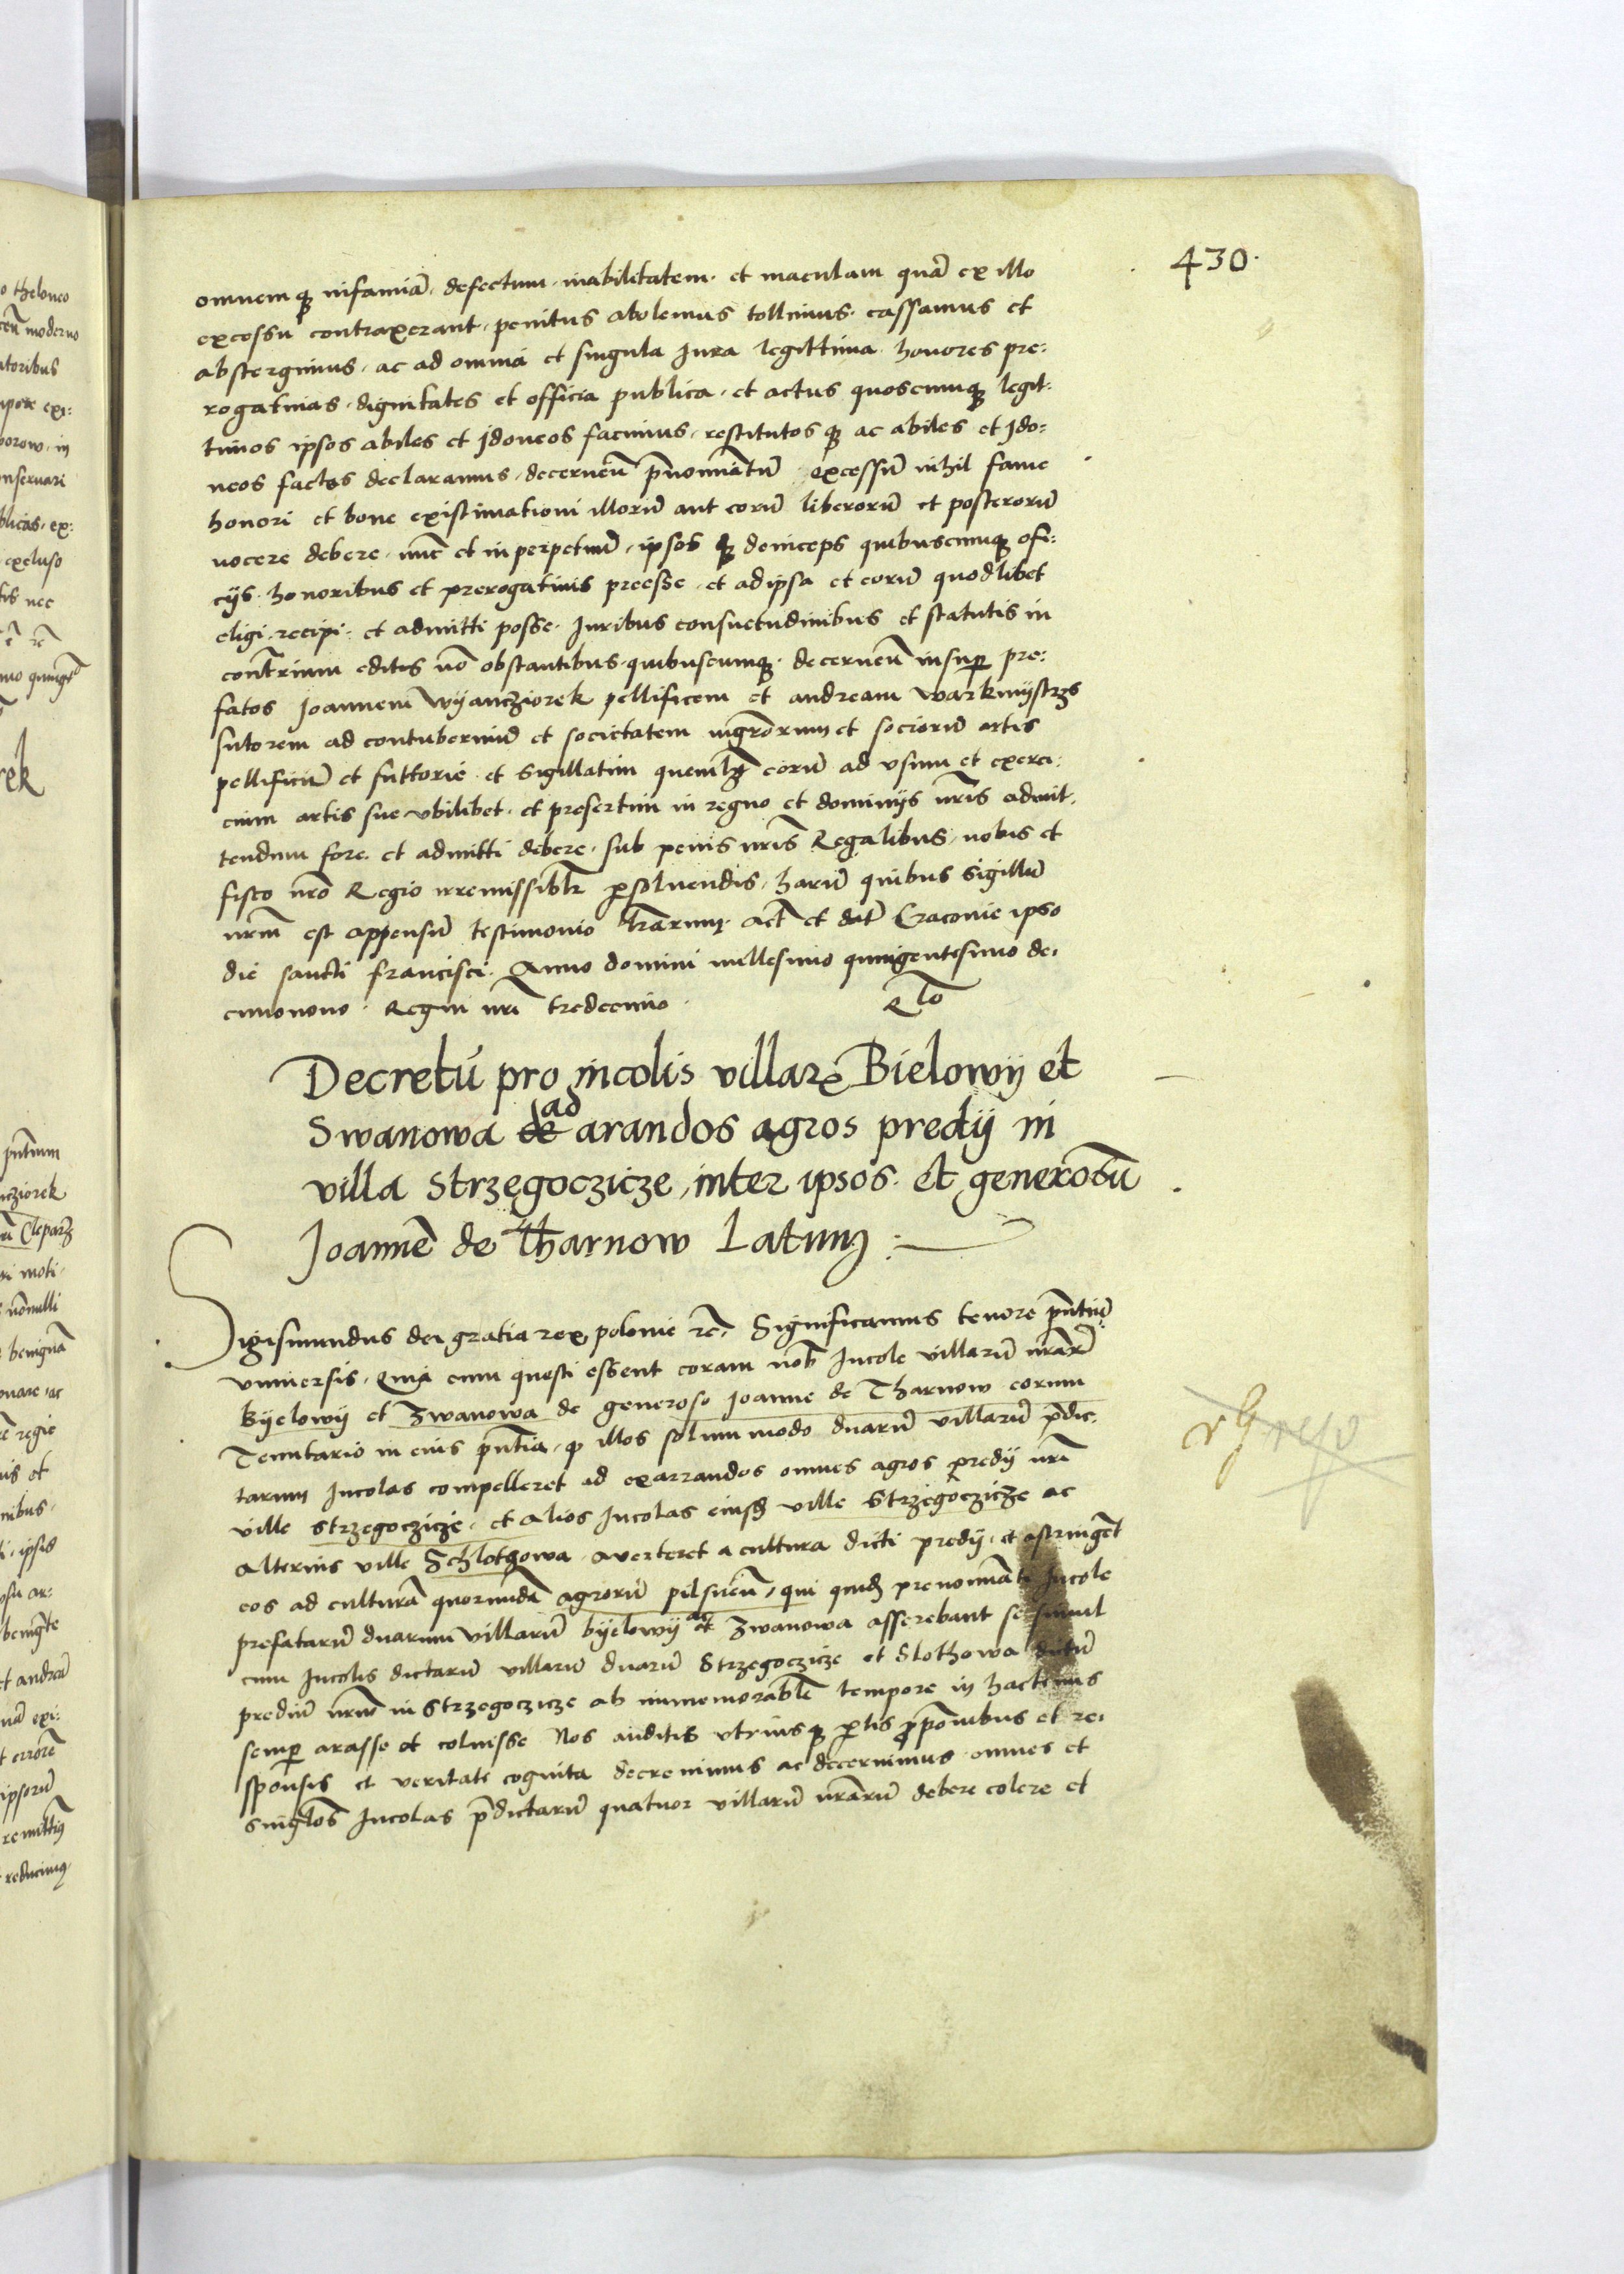 430.
omnemq; infamiã. defectum. inabilitatem. et maculam quã ex illo
excessu contraxerant. penitus abolemus tollimus. cassamus et
abstergimus. ac ad omnia et singula Jura legittima. honores pre:
rogatiuas. dignitates et officia publica. et actus quoscumq; legit:
timos ipsos abiles et Jdoneos facimus. restitutosq; ac abiles et Jdo:
neos factos declaramus. decerneñ p̃nomĩatũ excessũ nihil fame
honori et bone existimationi illorũ aut eorũ liberorũ et posterorũ
nocere debere. nũc et in perpetuũ. ipsosq; deinceps quibuscumq; ofi:
cijs. honoribus et prerogatiuis preesse. et ad ipsa et eorũ quodlibet
eligi. recipi. et admitti posse. Juribus consuetudinibus et statutis in
cont̃rium editis nõ obstantibus. quibuscumq;. decerneñ insup̃ pre:
fatos Joannem Wyancziorek pellificem et andream
sutorem ad contuberniũ et societatem mg̃rorum et sociorũ artis
pellificũ et suttorie. et sigillatim quemlꝫ eorũ ad vsum et exerci:
cium artis sue vbilibet. et presertim in regno et dominijs nr̃is admit:
tendum fore. et admitti debere. sub penis nr̃is Regalibus. nobis et
fisco nr̃o Regio irremissibilr̃ p̱soluendis. harũ quibus Sigillũ
nr̃m est appensũ testimonio lr̃arum. Act̃ et dat̃ Cracouie ipso
die sancti francisci. Anno domini millesimo quingentesimo de:
cimonono. Regni nr̃i tredecimo. Rl̃o
Decretũ pro incolis villarꝝ Bielowy et
Swanowa de ad arandos agros predij in
villa Strzegoczicze, inter ipsos. et generosũ
Joannẽ de Tharnow Latum:
Sigismundus dei gratia rex polonie ꝛc̃. Significamus tenore p̃ntiũ
vniuersis. Quia cum questi essent coram nob̃ Incole villarũ nr̃arũ
Byelowy et Zwanowa de generoso Joanne de Tharnow eorum
Tenutario in eius p̃ntia. ꝙ illos solummodo duarũ villarũ p̃dic:
tarum Incolas compelleret ad exarrandos omnes agros predij nr̃i
ville Strzegoczicze. et alios Incolas eiusd̃ ville Strzegoczicze ac
alterius ville Schlothowa. auerteret a cultura dicti predij. et astringe̾t
eos ad culturã quorundã agrorũ pilsneñ, qui quid̃ prenominati Incole
prefatarũ duarum villarũ byelowy ac et Zwanowa asserebant se simul
cum Incolis dictarũ villarũ duarũ Strzegoczicze et Slothowa dictũ
prediũ nr̃m in Strzegoczicze ab immemorabili tempore in hactenus
semp̃ arasse et coluisse Nos auditis vtriusq; p̱tis p̃põnibus et re:
sponsis et veritate cognita decreuimus ac decernimus omnes et
singlõs Incolas p̃dictarũ quatuor villarũ nr̃arũ debere colere et